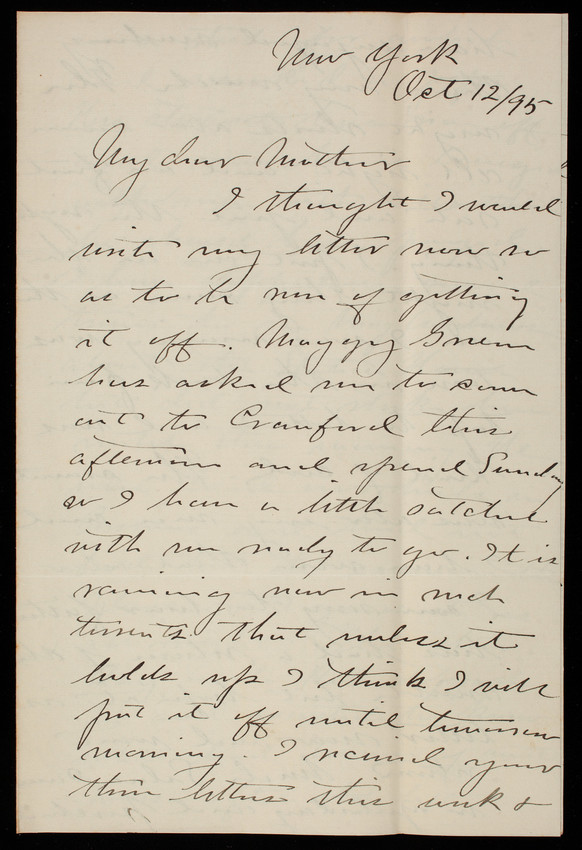 New York
Oct 12/95
My dear Mother
I thought I would
write my letter now so
as to be sure of getting
it off. Maggy Green
has asked me to come
out to Cranford this
afternoon and spend Sunday
so I have a little satchel
with me ready to go. It is
raining now in such
torrents that unless it
holds up I think I will
put it off until tomorrow
morning. I received your
three letters this week &